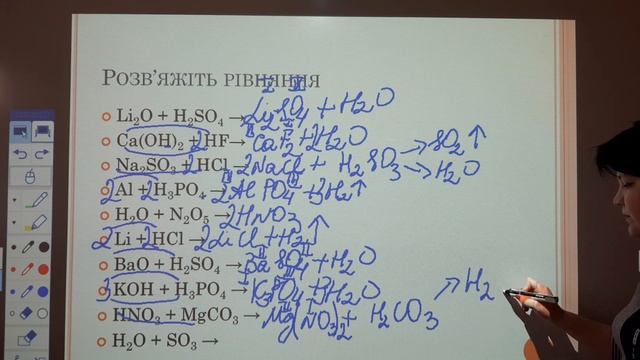 Розв'яжіть рівняння
Li₂O + H₂SO₄ → Li₂SO₄ + H₂O
Ca(OH)₂ + 2HF → CaF₂ + 2H₂O
Na₂SO₃ + 2HCl → 2NaCl + H₂SO₃ → SO₂↑ → H₂O
2Al + 2H₃PO₄ → 2AlPO₄ + 3H₂↑
H₂O + N₂O₅ → 2HNO₃
2Li + 2HCl → 2LiCl + H₂↑
BaO + H₂SO₄ → BaSO₄ + H₂O
3KOH + H₃PO₄ → K₃PO₄ + 3H₂O
HNO₃ + MgCO₃ → Mg(NO₃)₂ + H₂CO₃ → H₂
H₂O + SO₃ →